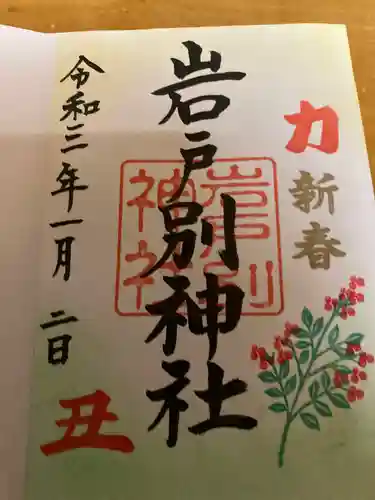 力
新春
岩戸別神社
岩戸別神社
令和三年一月二日
丑